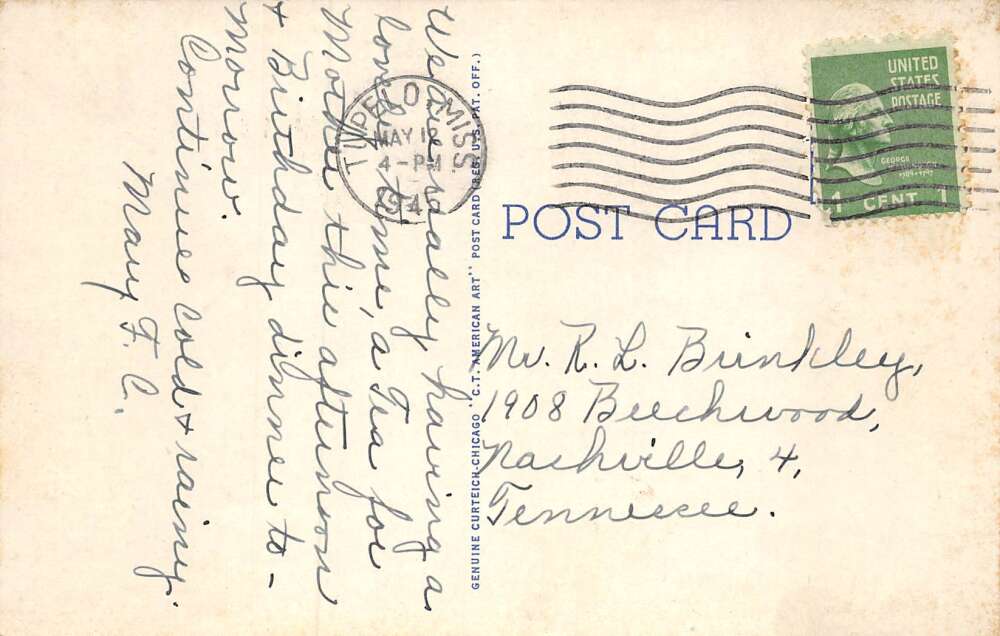 We are really having a
lovely time, a Tea for
Mother this afternoon
& Birthday dinner to-
morrow.
Continues cold & rainy.
Mary F. C.
TUPELO, MISS.
MAY 12
4-PM
194
GENUINE CURTEICH-CHICAGO "C.T. AMERICAN ART" POST CARD (REG. U.S. PAT. OFF.)
UNITED
STATES
POSTAGE
GEORGE
WASHINGTON
1 CENT 1
POST CARD
Mr. R. L. Brinkley,
1908 Beechwood,
Nashville, 4,
Tennessee.